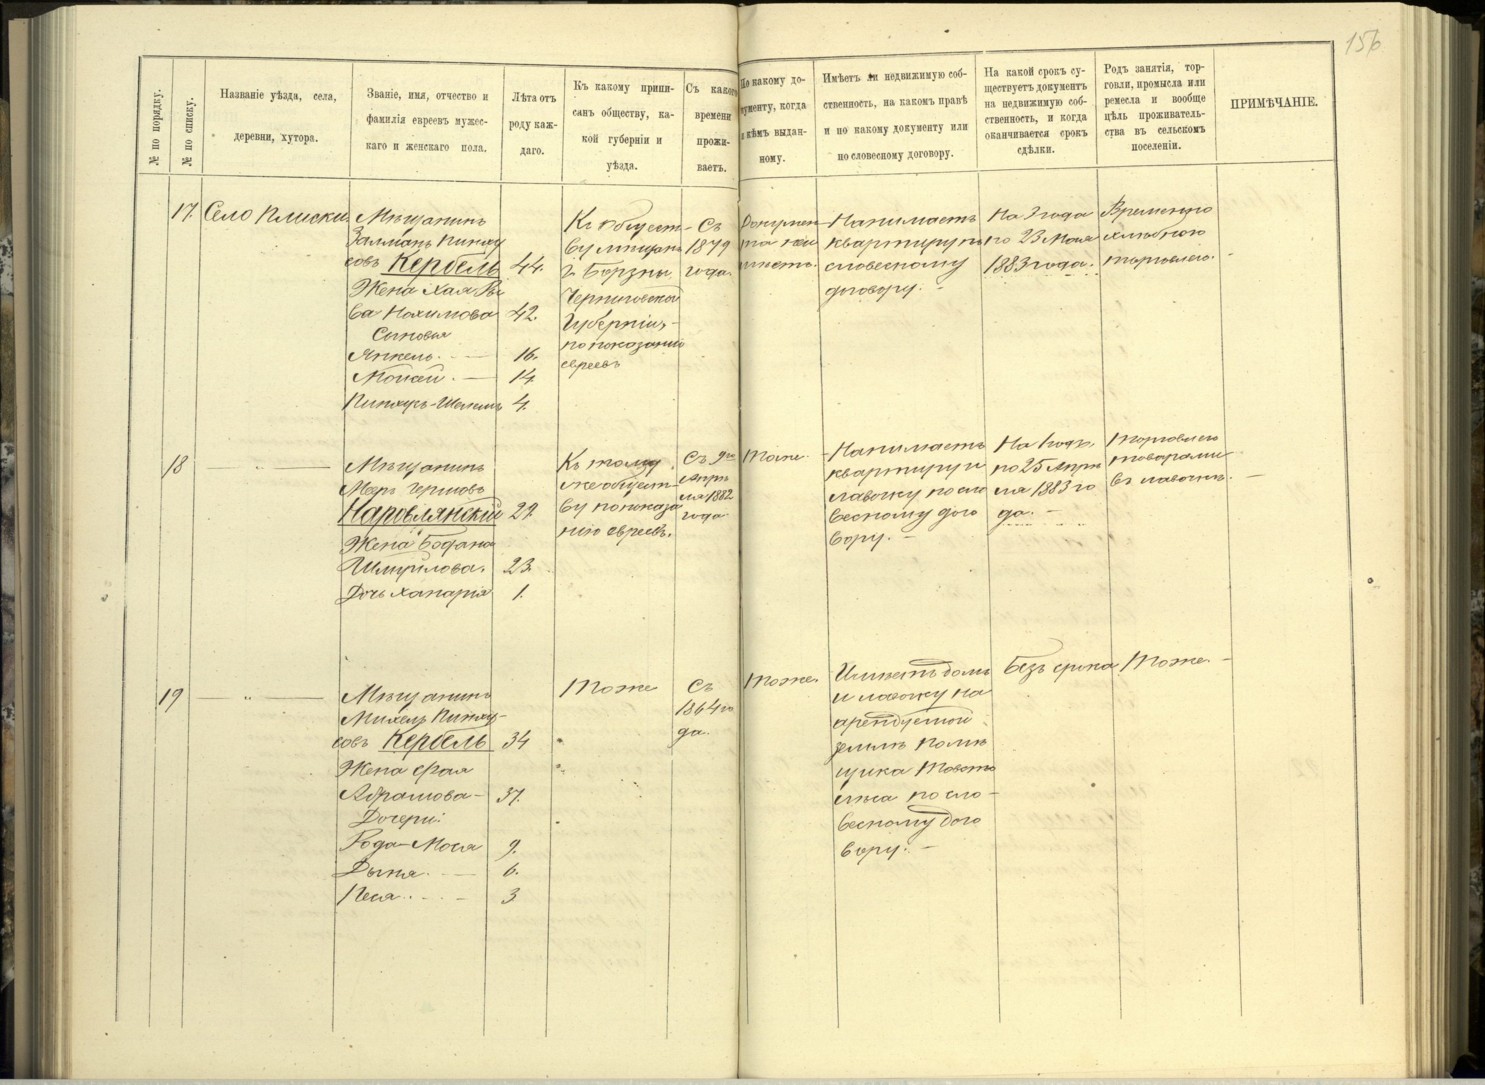 156
№ по порядку.
№ по списку.
Названіе уѣзда, села,
деревни, хутора.
Званіе, имя, отчество и
фамилія евреевъ мужес-
каго и женскаго пола.
Лѣта отъ
роду каж-
даго.
Къ какому припи-
санъ обществу, ка-
кой губерніи и
уѣзда.
Съ какого
времени
прожи-
ваетъ.
По какому до-
кументу, когда
и кѣмъ выдан-
ному.
Имѣетъ ли недвижимую соб-
ственность, на какомъ правѣ
и по какому документу или
по словесному договору.
На какой срокъ су-
ществуетъ документъ
на недвижимую соб-
ственность, и когда
оканчивается срокъ
сдѣлки.
Родъ занятія, тор-
говли, промысла или
ремесла и вообще
цѣль проживатель-
ства въ сельскомъ
поселеніи.
ПРИМѢЧАНІЕ.
17.
Село Плиски.
Мѣщанинъ
Залманъ Пинху
совъ Кербель
44.
Жена Хая-Ри
ва Нохимова
42.
Сыновья
Янкель. —
16.
Мошей. —
14.
Пинхусъ-
4.
Къ общест-
ву мѣщанъ
г. Борзны
Черниговской
Губерніи,-
по показанію
евреевъ
Съ
1879
года.
Докумен-
та не
имѣетъ.
Нанимаетъ
квартиру по
словесному
договору. -
На 3 года
по 23 Мая
1883 года.
Временно
хлѣбною
торговлею.
18
— „ —
Мѣщанинъ
Меръ Гершовъ
Наровлянскій
29.
Жена Богдана
Шмуйлова.
23.
Дочь
1.
Къ тому
же общест-
ву по показа
нію евреевъ.
Съ 9го
Апрѣ
ля 1882
года
Тоже.
Нанимаетъ
квартиру и
лавочку по сло
весному дого
вору. -
На 1 годъ,
по 25 Апрѣ
ля 1883 го
да. -
Торговлею
товарами
въ лавочкѣ.
19
— „ —
Мѣщанинъ
Михель Пинху-
совъ Кербель
34
Жена Фрая
Абрамова -
37.
Дочери:
Рода-Мося
9.
Дыня. —
6.
Песя. . - -
3
Тоже
Съ
1864 го
да.
Тоже.
Имѣетъ домъ
и лавочку на
арендуемой
землѣ помѣ
щика
по сло-
весному дого
вору. -
Безъ срока
Тоже. -